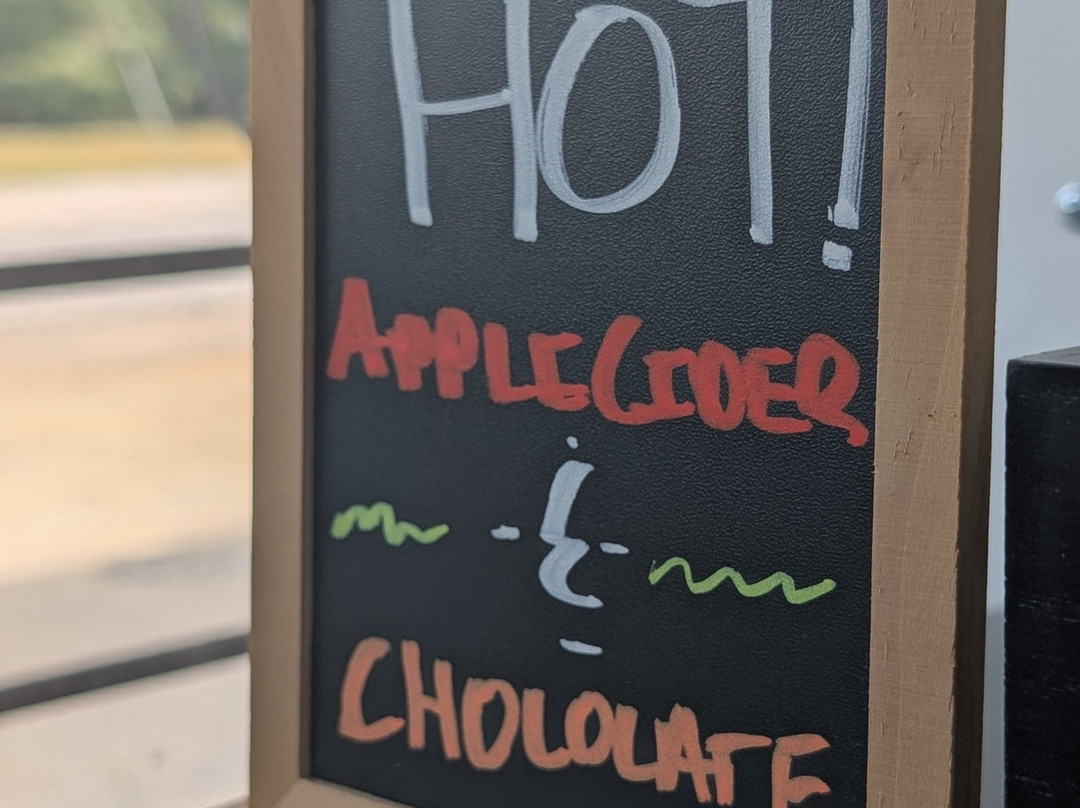 HOT!
APPLE CIDER
&
CHOCOLATE